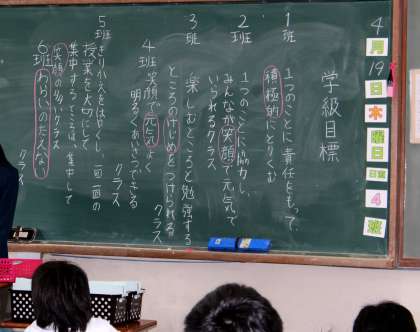 4月19日木曜日
日直 4班
学級目標
1班
1つのことに責任をもって、
積極的にとりくむ
2班
1つのことに協力し、
みんなが笑顔で元気で
いられるクラス
3班
楽しむところと勉強する
ところのけじめをつけられる
クラス
4班
笑顔で元気よく
明るくあいさつできる
クラス
5班
きりかえをはやくし
授業を大切にして 一回一回の
集中するところは、集中して
笑顔の多いクラス
6班
わらいのたえない
クラス